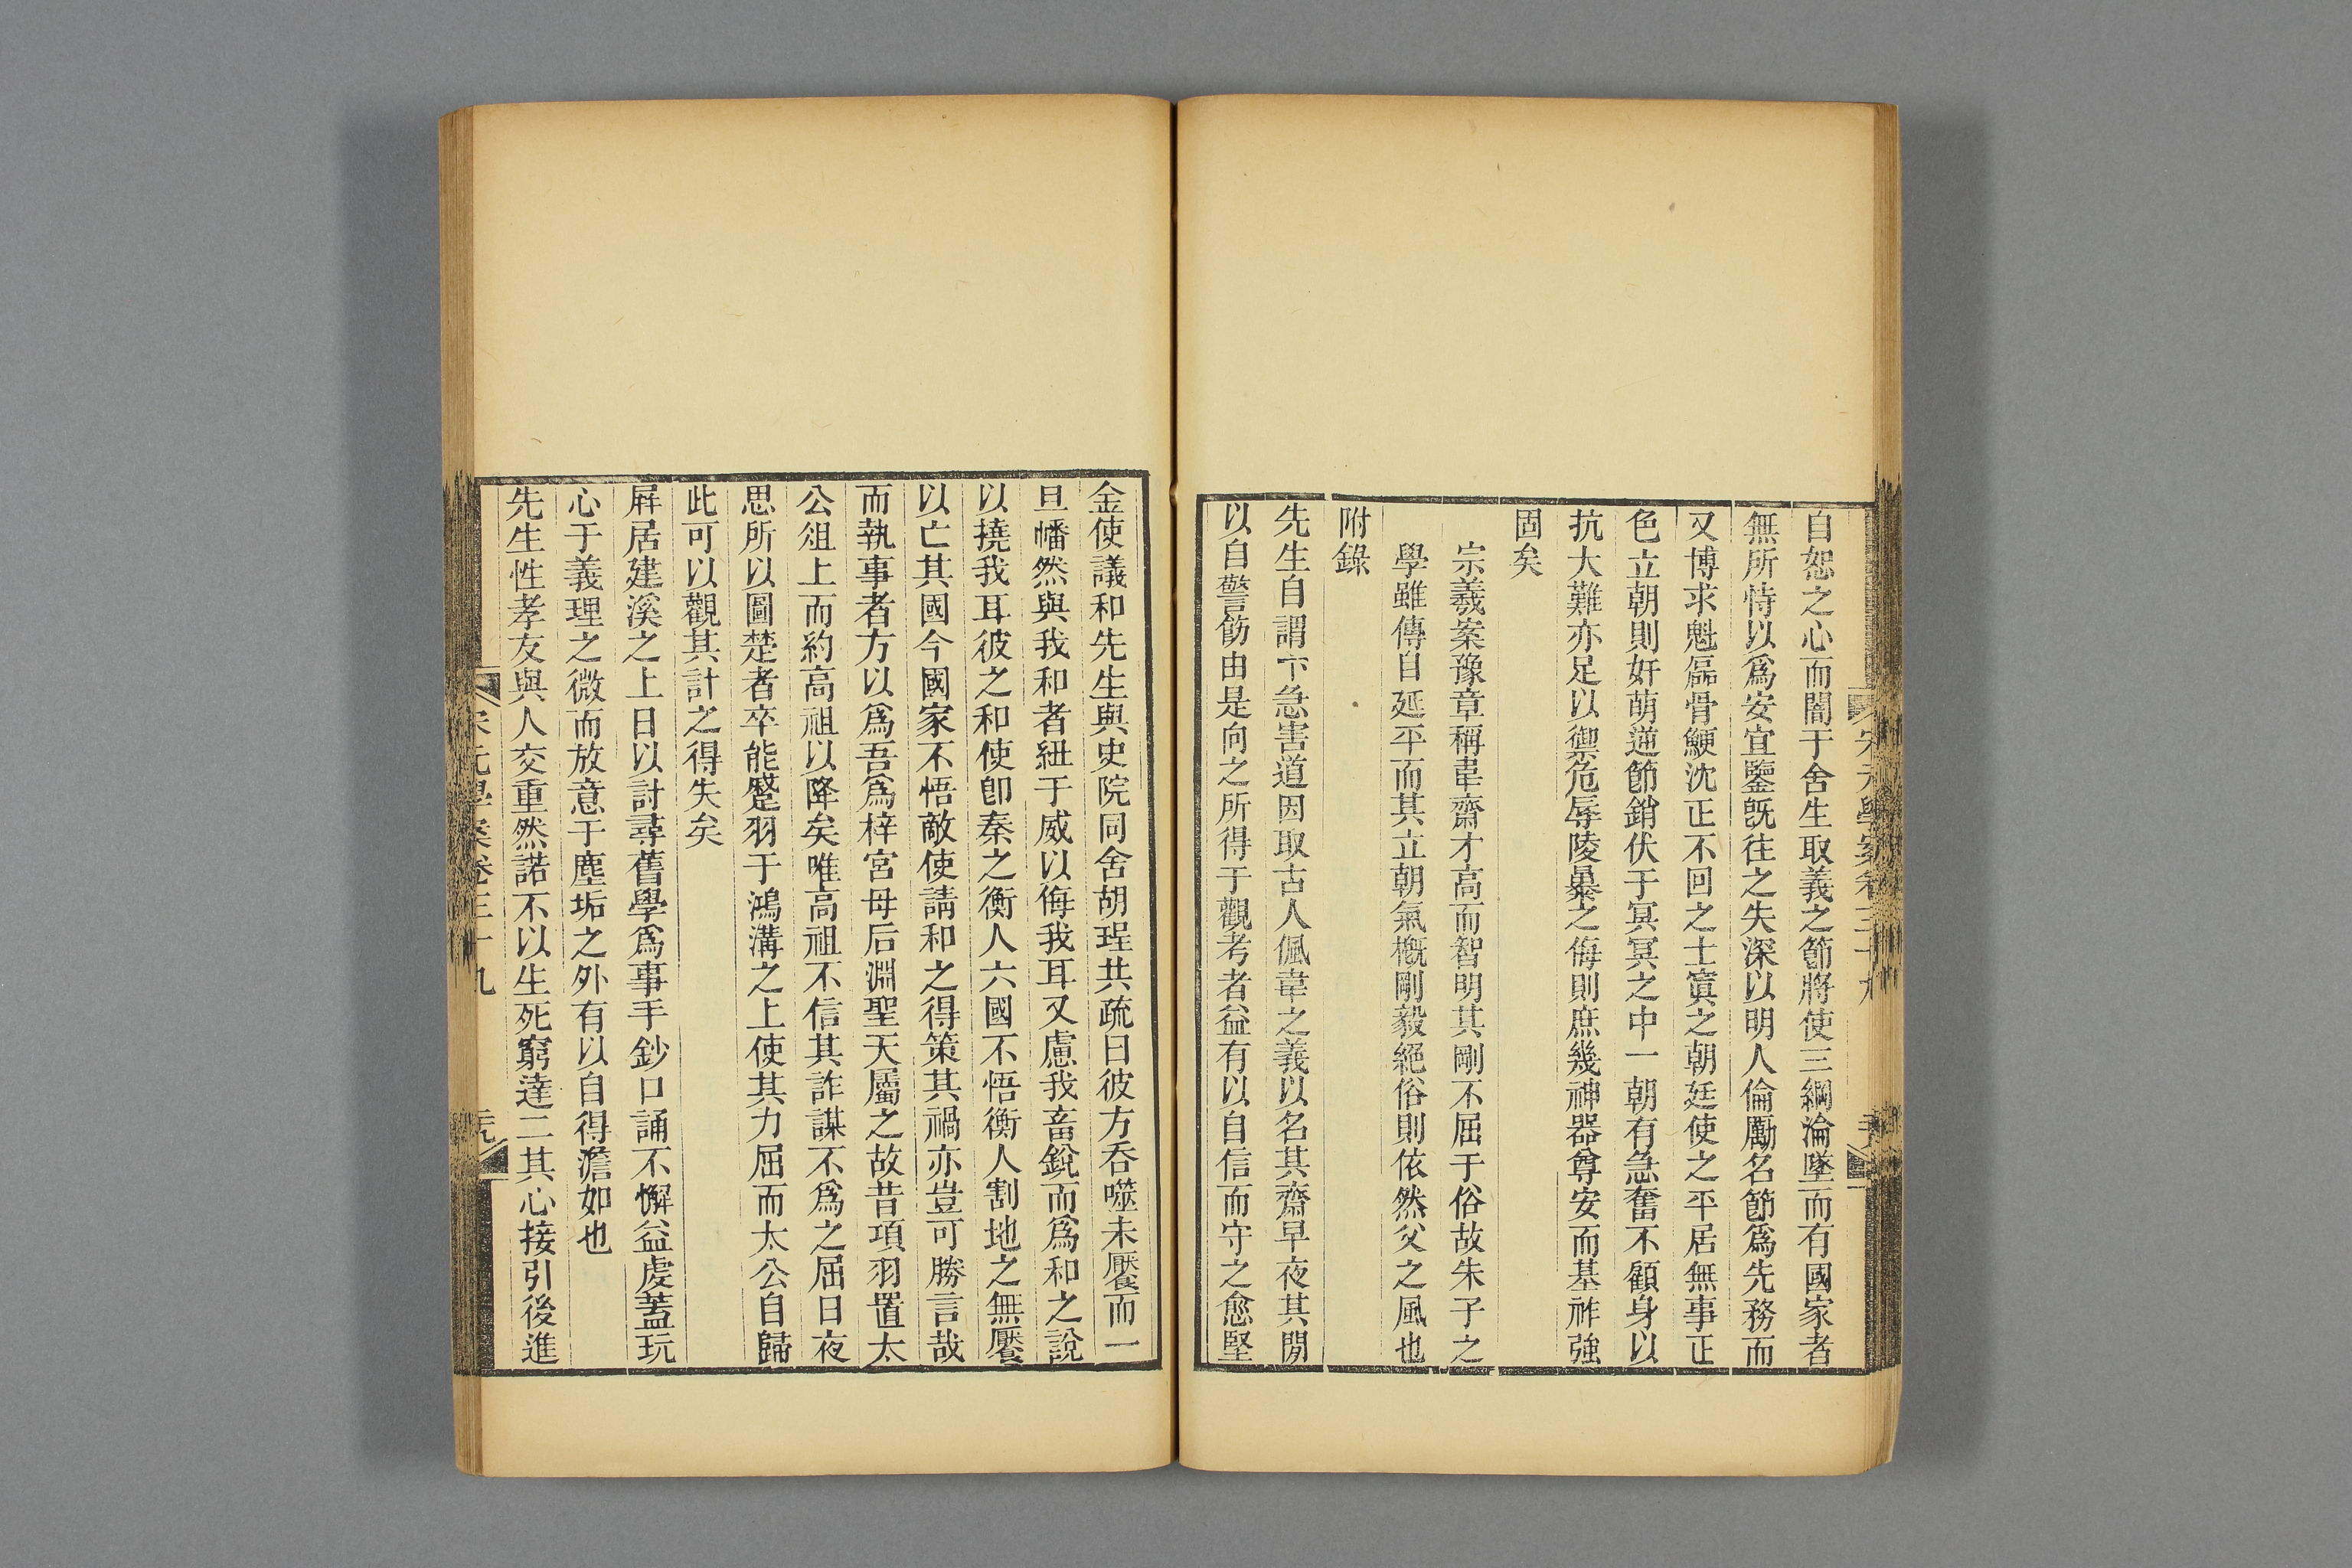 自恕之心而闇于舍生取義之節將使三綱淪墜而有國家者
無所恃以爲安宜鑒旣往之失深以明人倫勵名節爲先務而
又博求魁礨骨鯁沈正不回之士寘之朝廷使之平居無事正
色立朝則奸萌逆節銷伏于冥冥之中一朝有急奮不顧身以
抗大難亦足以禦危辱陵暴之侮則庶幾神器尊安而基祚強
固矣
宗羲案豫章稱韋齋才高而智明其剛不屈于俗故朱子之
學雖傳自延平而其立朝氣槪剛毅絕俗則依然父之風也
附錄
先生自謂卞急害道因取古人佩韋之義以名其齋早夜其閒
以自警飭由是向之所得于觀考者益有以自信而守之愈堅
金使議和先生與史院同舍胡珵共疏曰彼方吞噬未饜而一
旦幡然與我和者紐于威以侮我耳又慮我畜銳而爲和之說
以撓我耳彼之和使卽秦之衡人六國不悟衡人割地之無饜
以亡其國今國家不悟敵使請和之得策其禍亦豈可勝言哉
而執事者方以爲吾爲梓宮母后淵聖天屬之故昔項羽置太
公俎上而約高祖以降矣唯高祖不信其詐謀不爲之屈日夜
思所以圖楚者卒能蹙羽于鴻溝之上使其力屈而太公自歸
此可以觀其計之得失矣
屛居建溪之上日以討尋舊學爲事手鈔口誦不懈益虔蓋玩
心于義理之微而放意于塵垢之外有以自得澹如也
先生性孝友與人交重然諾不以生死窮達二其心接引後進
宋元學案卷三十九